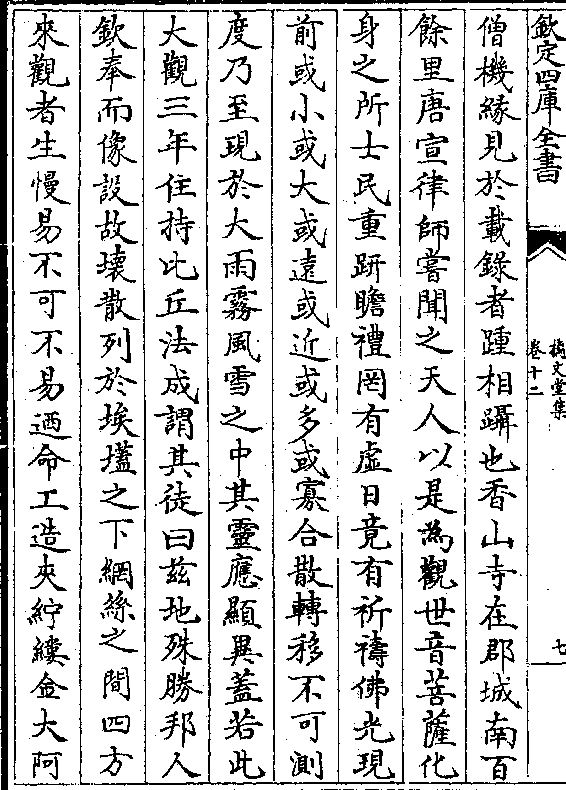 欽定四庫全書
摛文堂集
卷十二
七
僧機緣見於載錄者踵相躡也香山寺在郡城南百
餘里唐宣律師嘗聞之天人以是為觀世音菩薩化
身之所士民重趼瞻禮罔有虛日竟有祈禱佛光現
前或小或大或遠或近或多或寡合散轉移不可測
度乃至現於大雨霧風雪之中其靈應顯異蓋若此
大觀三年住持比丘法成謂其徒曰茲地殊勝邦人
欽奉而像設故壞散列於埃壒之下網絲之間四方
來觀者生慢易不可不易迺命工造夾紵縷金大阿